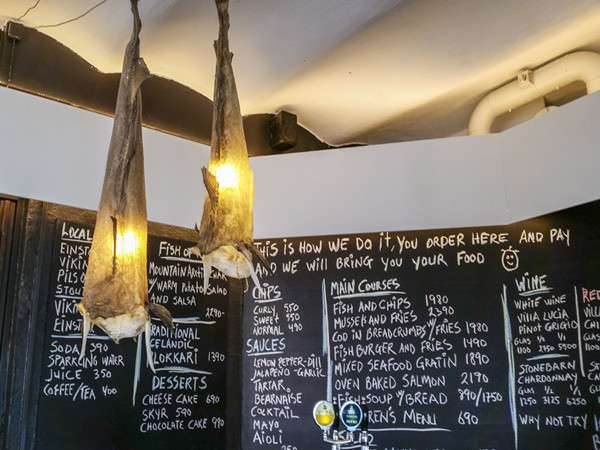 LOCAL
EINST
VIKIN
PILS
STOUT
VIKIN
EINST
SODA 390
SPARKLING WATER
JUICE 350
COFFEE/TEA 400
FISH OF
MOUNTAIN ARCTIC CHAR
W/WARM POTATO SALAD
AND SALSA
2290-
TRADITIONAL
ICELANDIC
PLOKKARI 1390
DESSERTS
CHEESE CAKE 690
SKYR 590
CHOCOLATE CAKE 990
THIS IS HOW WE DO IT, YOU ORDER HERE AND PAY
AND WE WILL BRING YOU YOUR FOOD
CHIPS
CURLY 550
SWEET 550
NORMAL 490
SAUCES
LEMON PEPPER-DILL
JALAPENO-GARLIC
TARTAR
BEARNAISE
COCKTAIL
MAYO
AIOLI
250
MAIN COURSES
FISH AND CHIPS 1980
MUSSEL AND FRIES 2390
COD IN BREADCRUMBS W/FRIES 1980
FISH BURGER AND FRIES 1490
MIXED SEAFOOD GRATIN 1890
OVEN BAKED SALMON 2190
FISH SOUP W/BREAD 890/1750
REN'S MENU 690
WINE
WHITE WINE
VILLA LUCIA
PINOT GRIGIO
GLAS 1/2 1/1
1100 2750 5500
STONEBARN
CHARDONNAY
GLAS 1/2 1/1
1250 3125 6250
WHY NOT TRY
RED